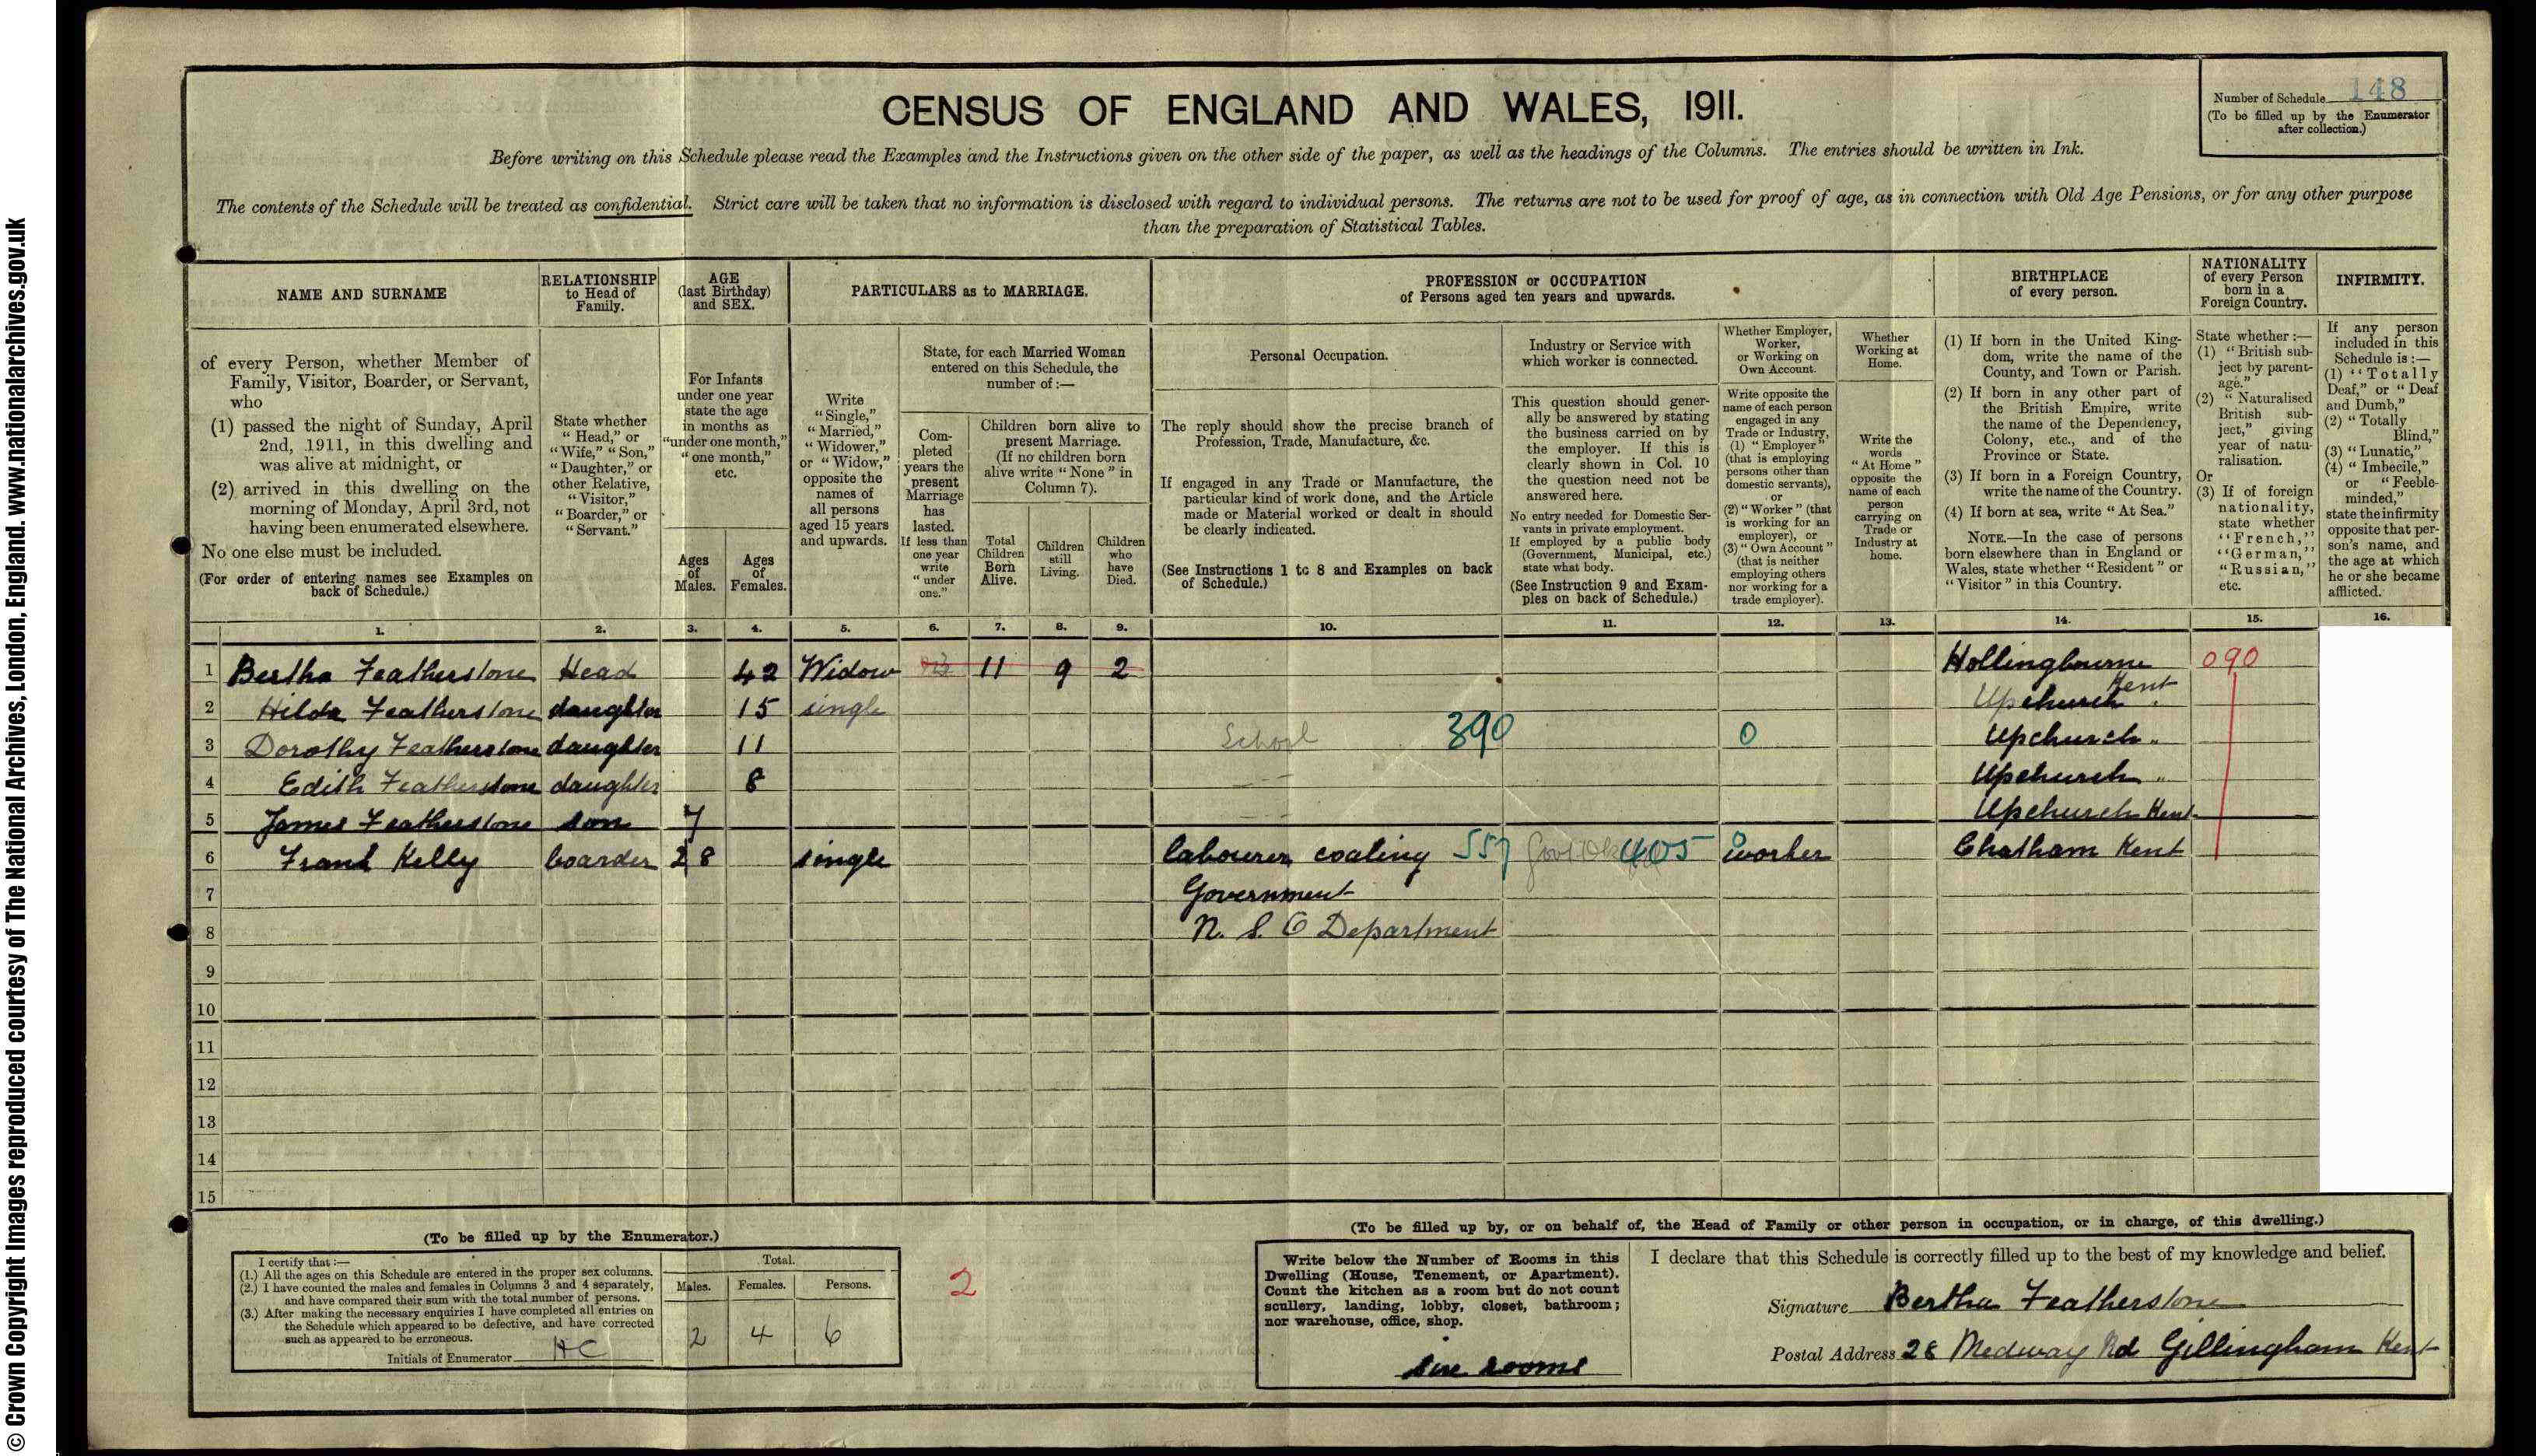 © Crown Copyright Images reproduced courtesy of The National Archives, London, England. www.nationalarchives.gov.uk
CENSUS OF ENGLAND AND WALES, 1911.
Number of Schedule 148
(To be filled up by the Enumerator
after collection.)
Before writing on this Schedule please read the Examples and the Instructions given on the other side of the paper, as well as the headings of the Columns. The entries should be written in Ink.
The contents of the Schedule will be treated as confidential. Strict care will be taken that no information is disclosed with regard to individual persons. The returns are not to be used for proof of age, as in connection with Old Age Pensions, or for any other purpose
than the preparation of Statistical Tables.
NAME AND SURNAME
RELATIONSHIP
to Head of
Family.
AGE
(last Birthday)
and SEX.
PARTICULARS as to MARRIAGE.
PROFESSION or OCCUPATION
of Persons aged ten years and upwards.
BIRTHPLACE
of every person.
NATIONALITY
of every Person
born in a
Foreign Country.
INFIRMITY.
of every Person, whether Member of
Family, Visitor, Boarder, or Servant,
who
(1) passed the night of Sunday, April
2nd, 1911, in this dwelling and
was alive at midnight, or
(2) arrived in this dwelling on the
morning of Monday, April 3rd, not
having been enumerated elsewhere.
No one else must be included.
(For order of entering names see Examples on
back of Schedule.)
State whether
"Head," or
"Wife," "Son,"
"Daughter," or
other Relative,
"Visitor,"
"Boarder," or
"Servant."
For Infants
under one year
state the age
in months as
"under one month,"
"one month,"
etc.
Ages
of
Males.
Ages
of
Females.
Write
"Single,"
"Married,"
"Widower,"
or "Widow,"
opposite the
names of
all persons
aged 15 years
and upwards.
State, for each Married Woman
entered on this Schedule, the
number of :—
Com-
pleted
years the
present
Marriage
has
lasted.
If less than
one year
write
"under
one."
Children born alive to
present Marriage.
(If no children born
alive write "None" in
Column 7).
Total
Children
Born
Alive.
Children
still
Living.
Children
who
have
Died.
Personal Occupation.
The reply should show the precise branch of
Profession, Trade, Manufacture, &c.
If engaged in any Trade or Manufacture, the
particular kind of work done, and the Article
made or Material worked or dealt in should
be clearly indicated.
(See Instructions 1 to 8 and Examples on back
of Schedule.)
Industry or Service with
which worker is connected.
This question should gener-
ally be answered by stating
the business carried on by
the employer. If this is
clearly shown in Col. 10
the question need not be
answered here.
No entry needed for Domestic Ser-
vants in private employment.
If employed by a public body
(Government, Municipal, etc.)
state what body.
(See Instruction 9 and Exam-
ples on back of Schedule.)
Whether Employer,
Worker,
or Working on
Own Account.
Write opposite the
name of each person
engaged in any
Trade or Industry,
(1) "Employer"
(that is employing
persons other than
domestic servants),
or
(2) "Worker" (that
is working for an
employer), or
(3) "Own Account"
(that is neither
employing others
nor working for a
trade employer).
Whether
Working at
Home.
Write the
words
"At Home"
opposite the
name of each
person
carrying on
Trade or
Industry at
home.
(1) If born in the United King-
dom, write the name of the
County, and Town or Parish.
(2) If born in any other part of
the British Empire, write
the name of the Dependency,
Colony, etc., and of the
Province or State.
(3) If born in a Foreign Country,
write the name of the Country.
(4) If born at sea, write "At Sea."
NOTE.—In the case of persons
born elsewhere than in England or
Wales, state whether "Resident" or
"Visitor" in this Country.
State whether :—
(1) "British sub-
ject by parent-
age."
(2) "Naturalised
British sub-
ject," giving
year of natu-
ralisation.
Or
(3) If of foreign
nationality,
state whether
"French,"
"German,"
"Russian,"
etc.
If any person
included in this
Schedule is :—
(1) "Totally
Deaf," or "Deaf
and Dumb,"
(2) "Totally
Blind,"
(3) "Lunatic,"
(4) "Imbecile,"
or "Feeble-
minded,"
state the infirmity
opposite that per-
son's name, and
the age at which
he or she became
afflicted.
1. 2. 3. 4. 5. 6. 7. 8. 9. 10. 11. 12. 13. 14. 15. 16.
1 Bertha Featherstone Head 42 Widow 11 9 2 Hollingbourne Kent 090
2 Hilda Featherstone daughter 15 single Upchurch "
3 Dorothy Featherstone daughter 11 School 390 0 Upchurch "
4 Edith Featherstone daughter 8 Upchurch "
5 James Featherstone son 7 Upchurch Kent
6 Frank Kelly boarder 28 single labourer coaling 557 405 worker Chatham Kent
7 Government
8 N. S. O Department
9
10
11
12
13
14
15
(To be filled up by the Enumerator.)
I certify that :—
(1.) All the ages on this Schedule are entered in the proper sex columns.
(2.) I have counted the males and females in Columns 3 and 4 separately,
and have compared their sum with the total number of persons.
(3.) After making the necessary enquiries I have completed all entries on
the Schedule which appeared to be defective, and have corrected
such as appeared to be erroneous.
Initials of Enumerator HC
Total.
Males. Females. Persons.
2 4 6
2
(To be filled up by, or on behalf of, the Head of Family or other person in occupation, or in charge, of this dwelling.)
Write below the Number of Rooms in this
Dwelling (House, Tenement, or Apartment).
Count the kitchen as a room but do not count
scullery, landing, lobby, closet, bathroom;
nor warehouse, office, shop.
rooms
I declare that this Schedule is correctly filled up to the best of my knowledge and belief.
Signature Bertha Featherstone
Postal Address 28 Medway Rd Gillingham Kent